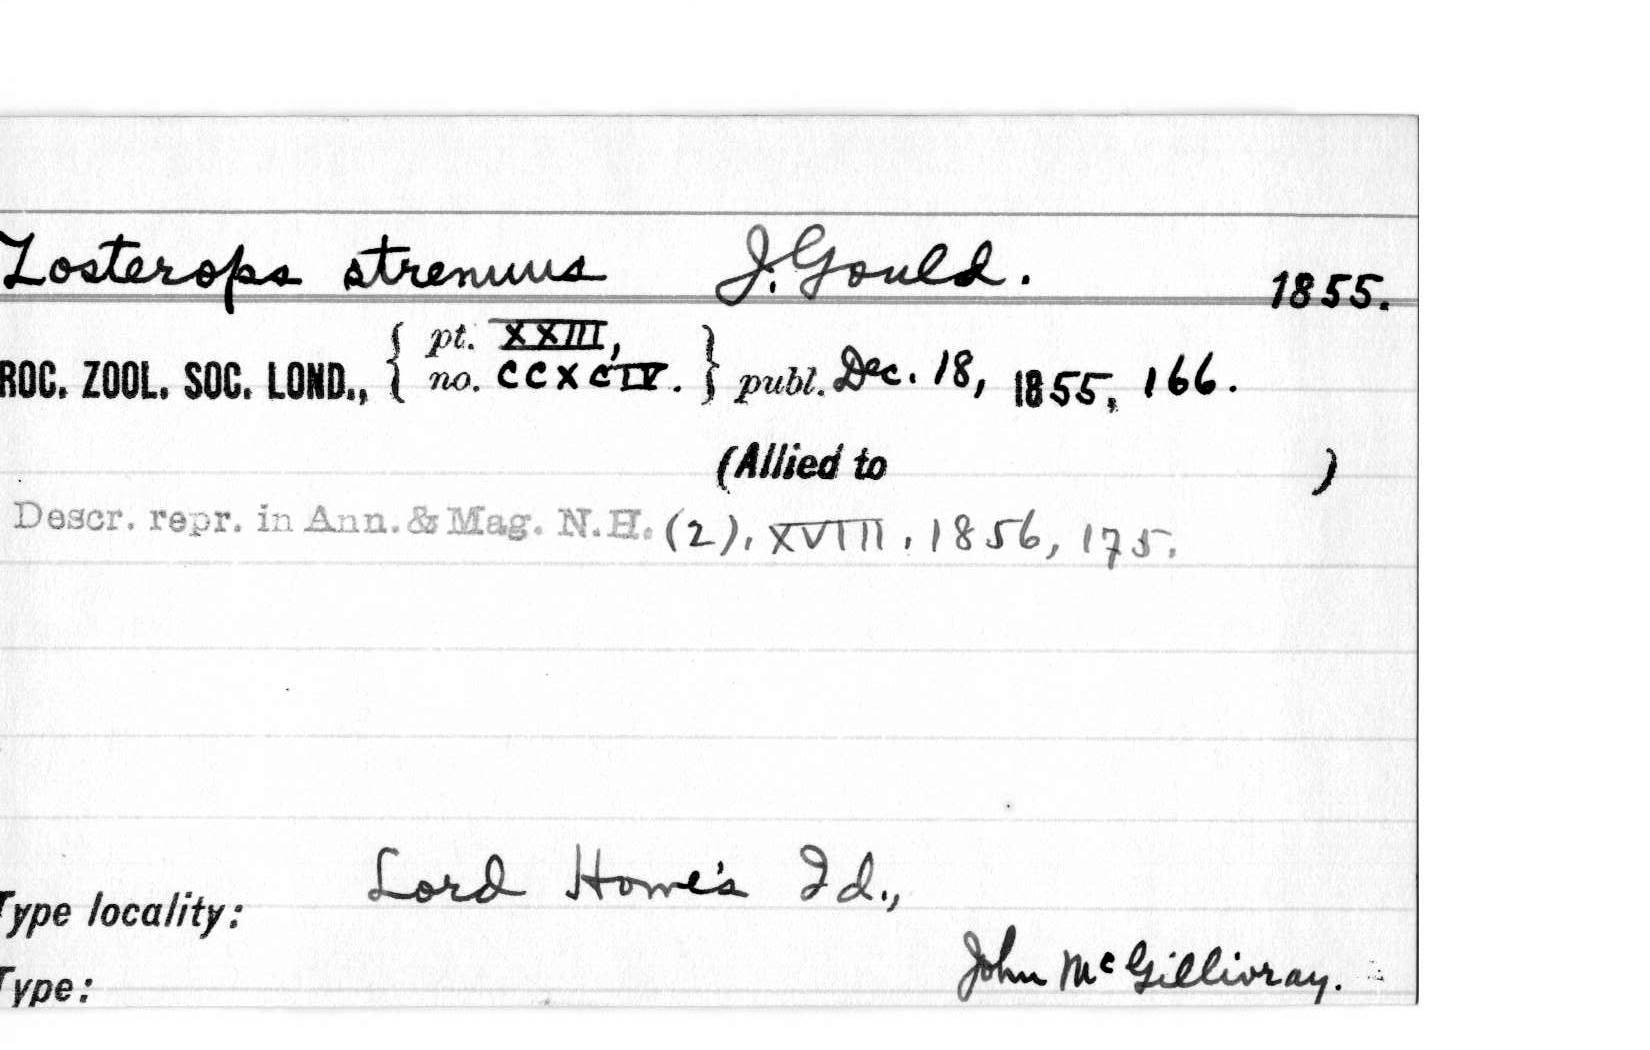 Zosterops strenuus J. Gould. 1855.
pt. XXIII,
ROC. ZOOL. SOC. LOND., { no. CCXCIV. } publ. Dec. 18, 1855, 166.
(Allied to )
Descr. repr. in Ann. & Mag. N.H. (2), XVIII, 1856, 175.
Type locality: Lord Howe's Id.,
John McGillivray.
Type: